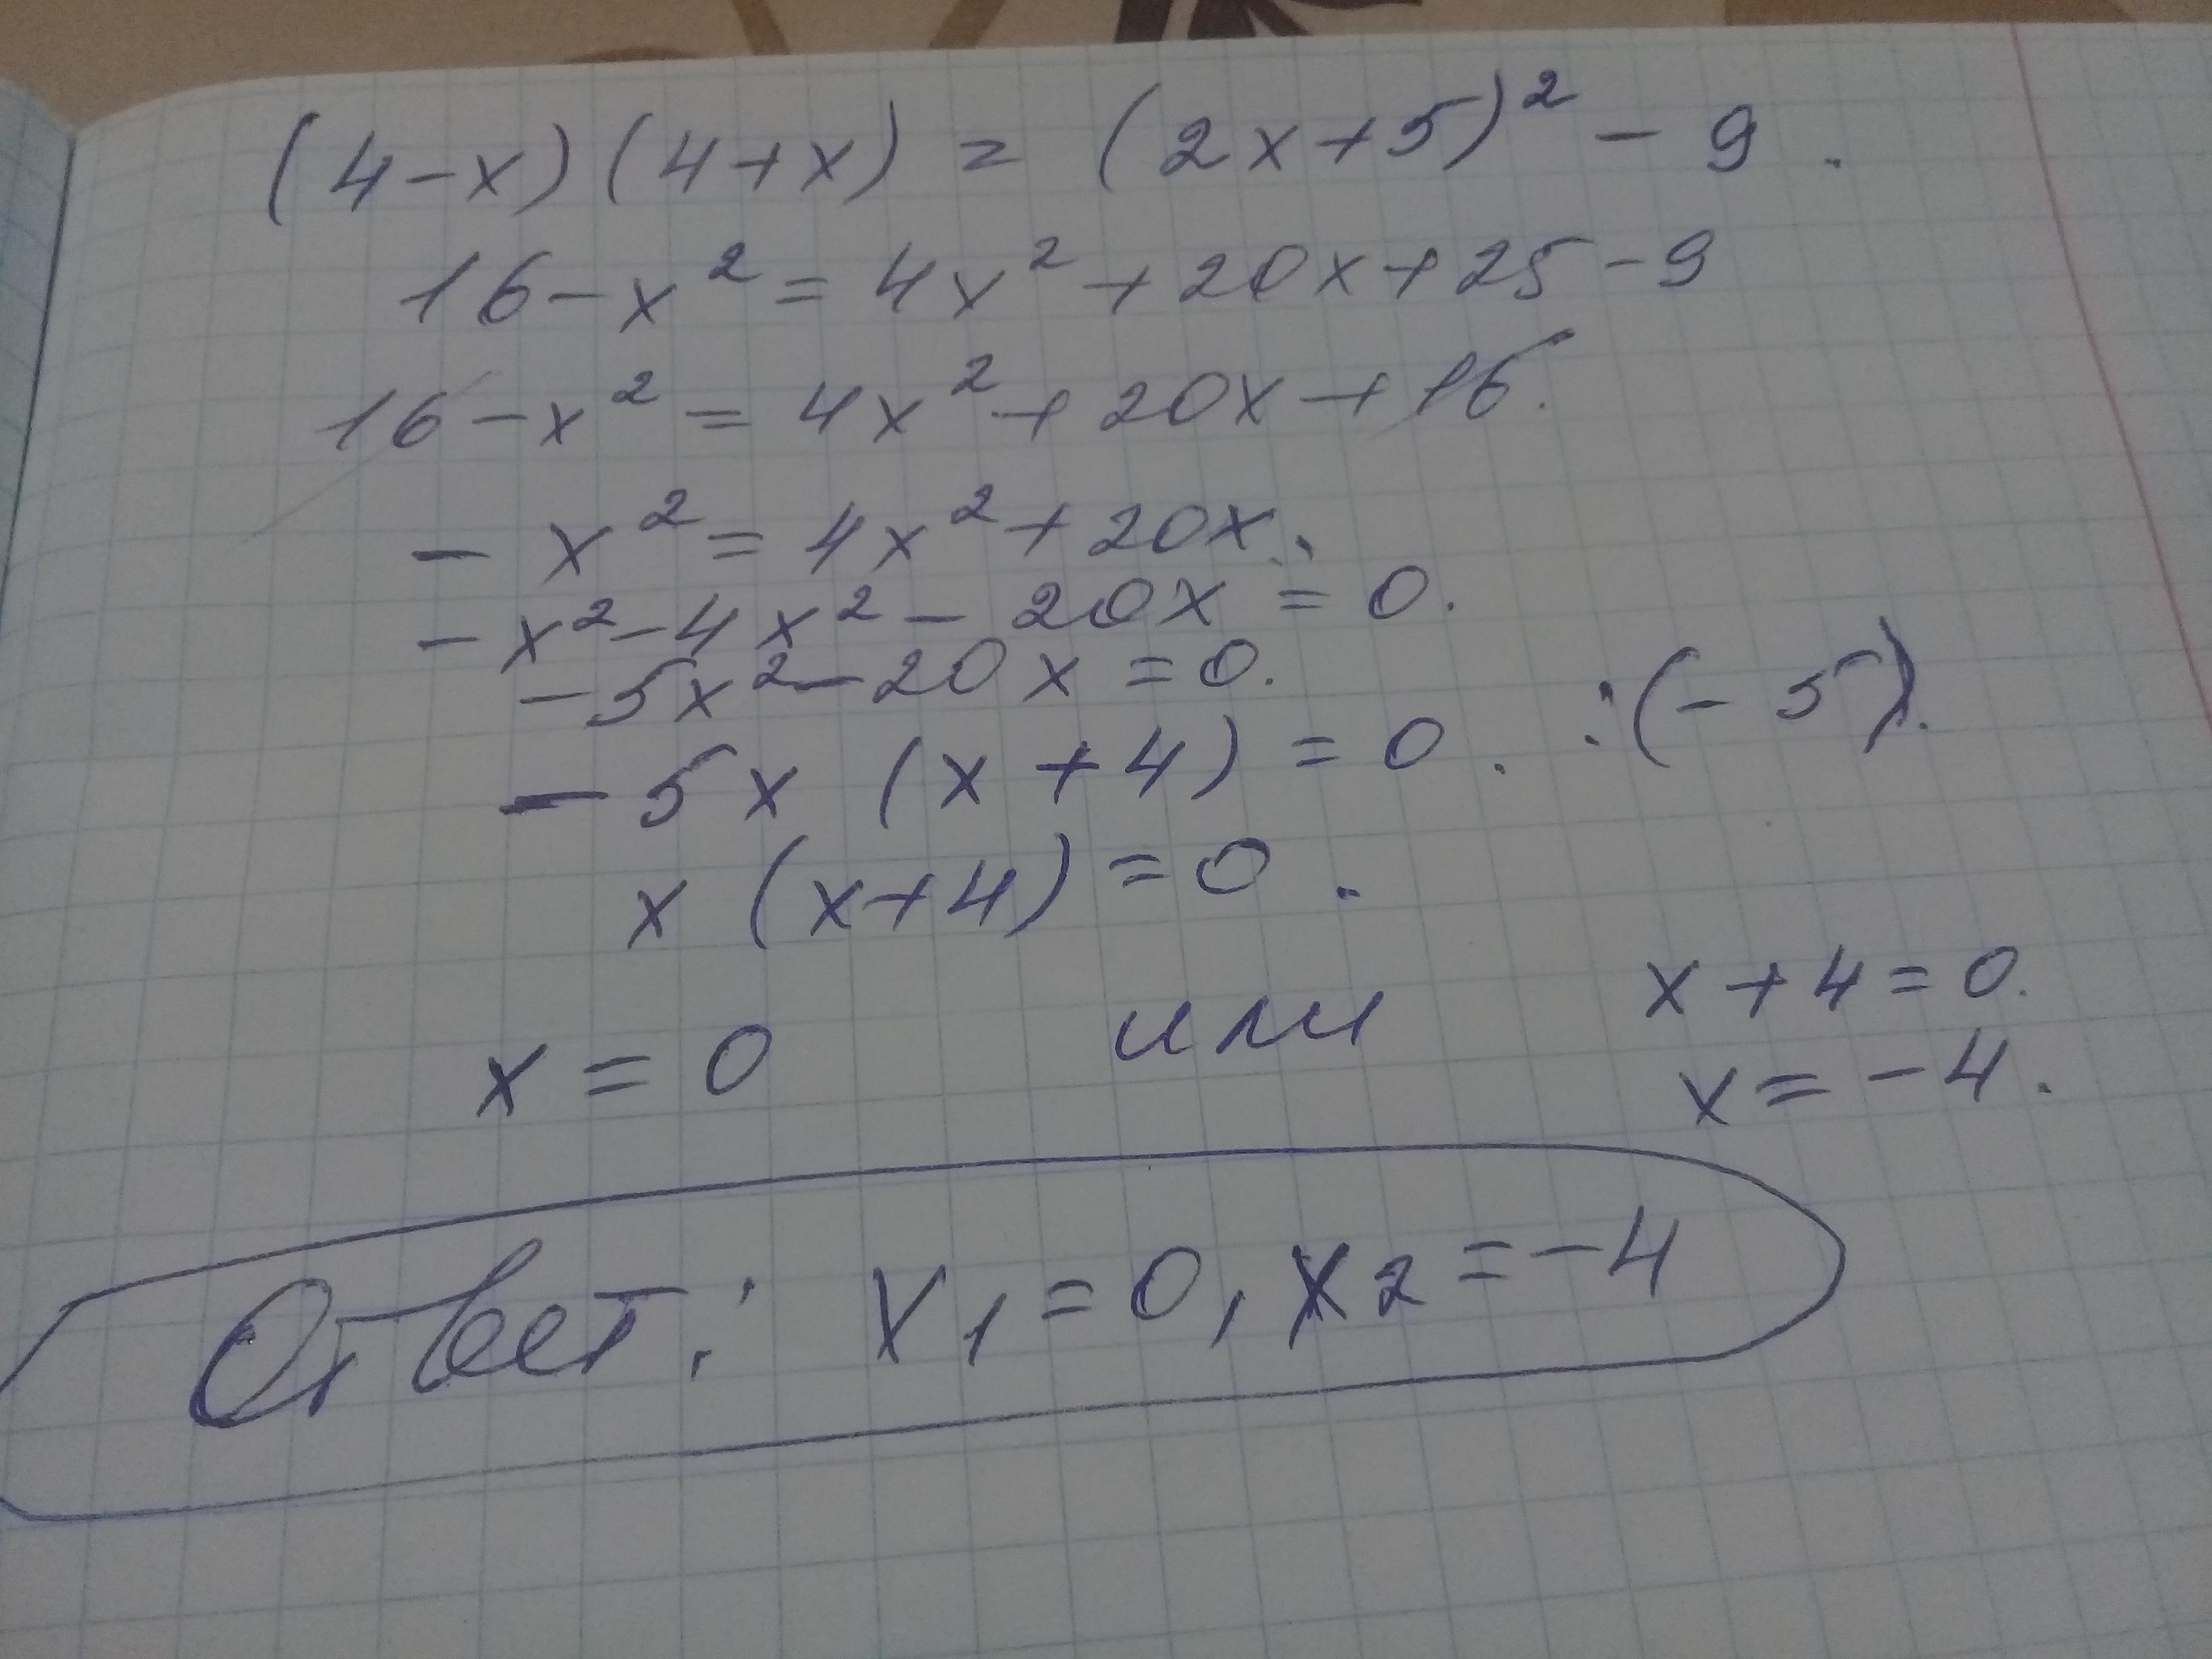 (4-x)(4+x) = (2x+5)² - 9.
16-x² = 4x² + 20x + 25 - 9
16-x² = 4x² + 20x + 16.
- x² = 4x² + 20x.
-x² - 4x² - 20x = 0.
-5x² - 20x = 0.
-5x (x+4) = 0. :(-5).
x (x+4) = 0.
x = 0 или x+4=0.
x = -4.
Ответ: x₁ = 0, x₂ = -4